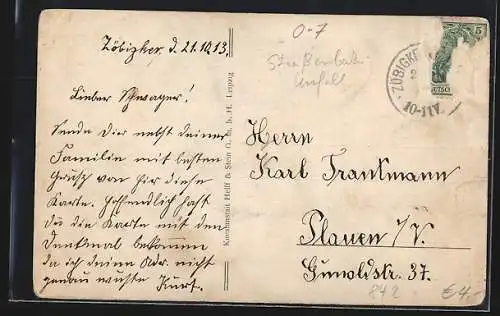 Zöbigker d. 21.10.13.
Lieber Schwager!
Sende Dir nebst deiner
Familie mit besten
Gruß von hir diese
Karte. Hoffendlich hast
du die Karte mit dem
Denkmal bekommen
da ich deine Adr. nicht
genau wußte Kurt.
Kunstanstalt Helff & Stein G. m. b. H. Leipzig
0-7
Straßenbahn
unfall
ZÖBIGKE
10-11V.
5
Herrn
Karl Trankmann
Plauen i/V.
Gunoldstr. 37.
842
€4,-